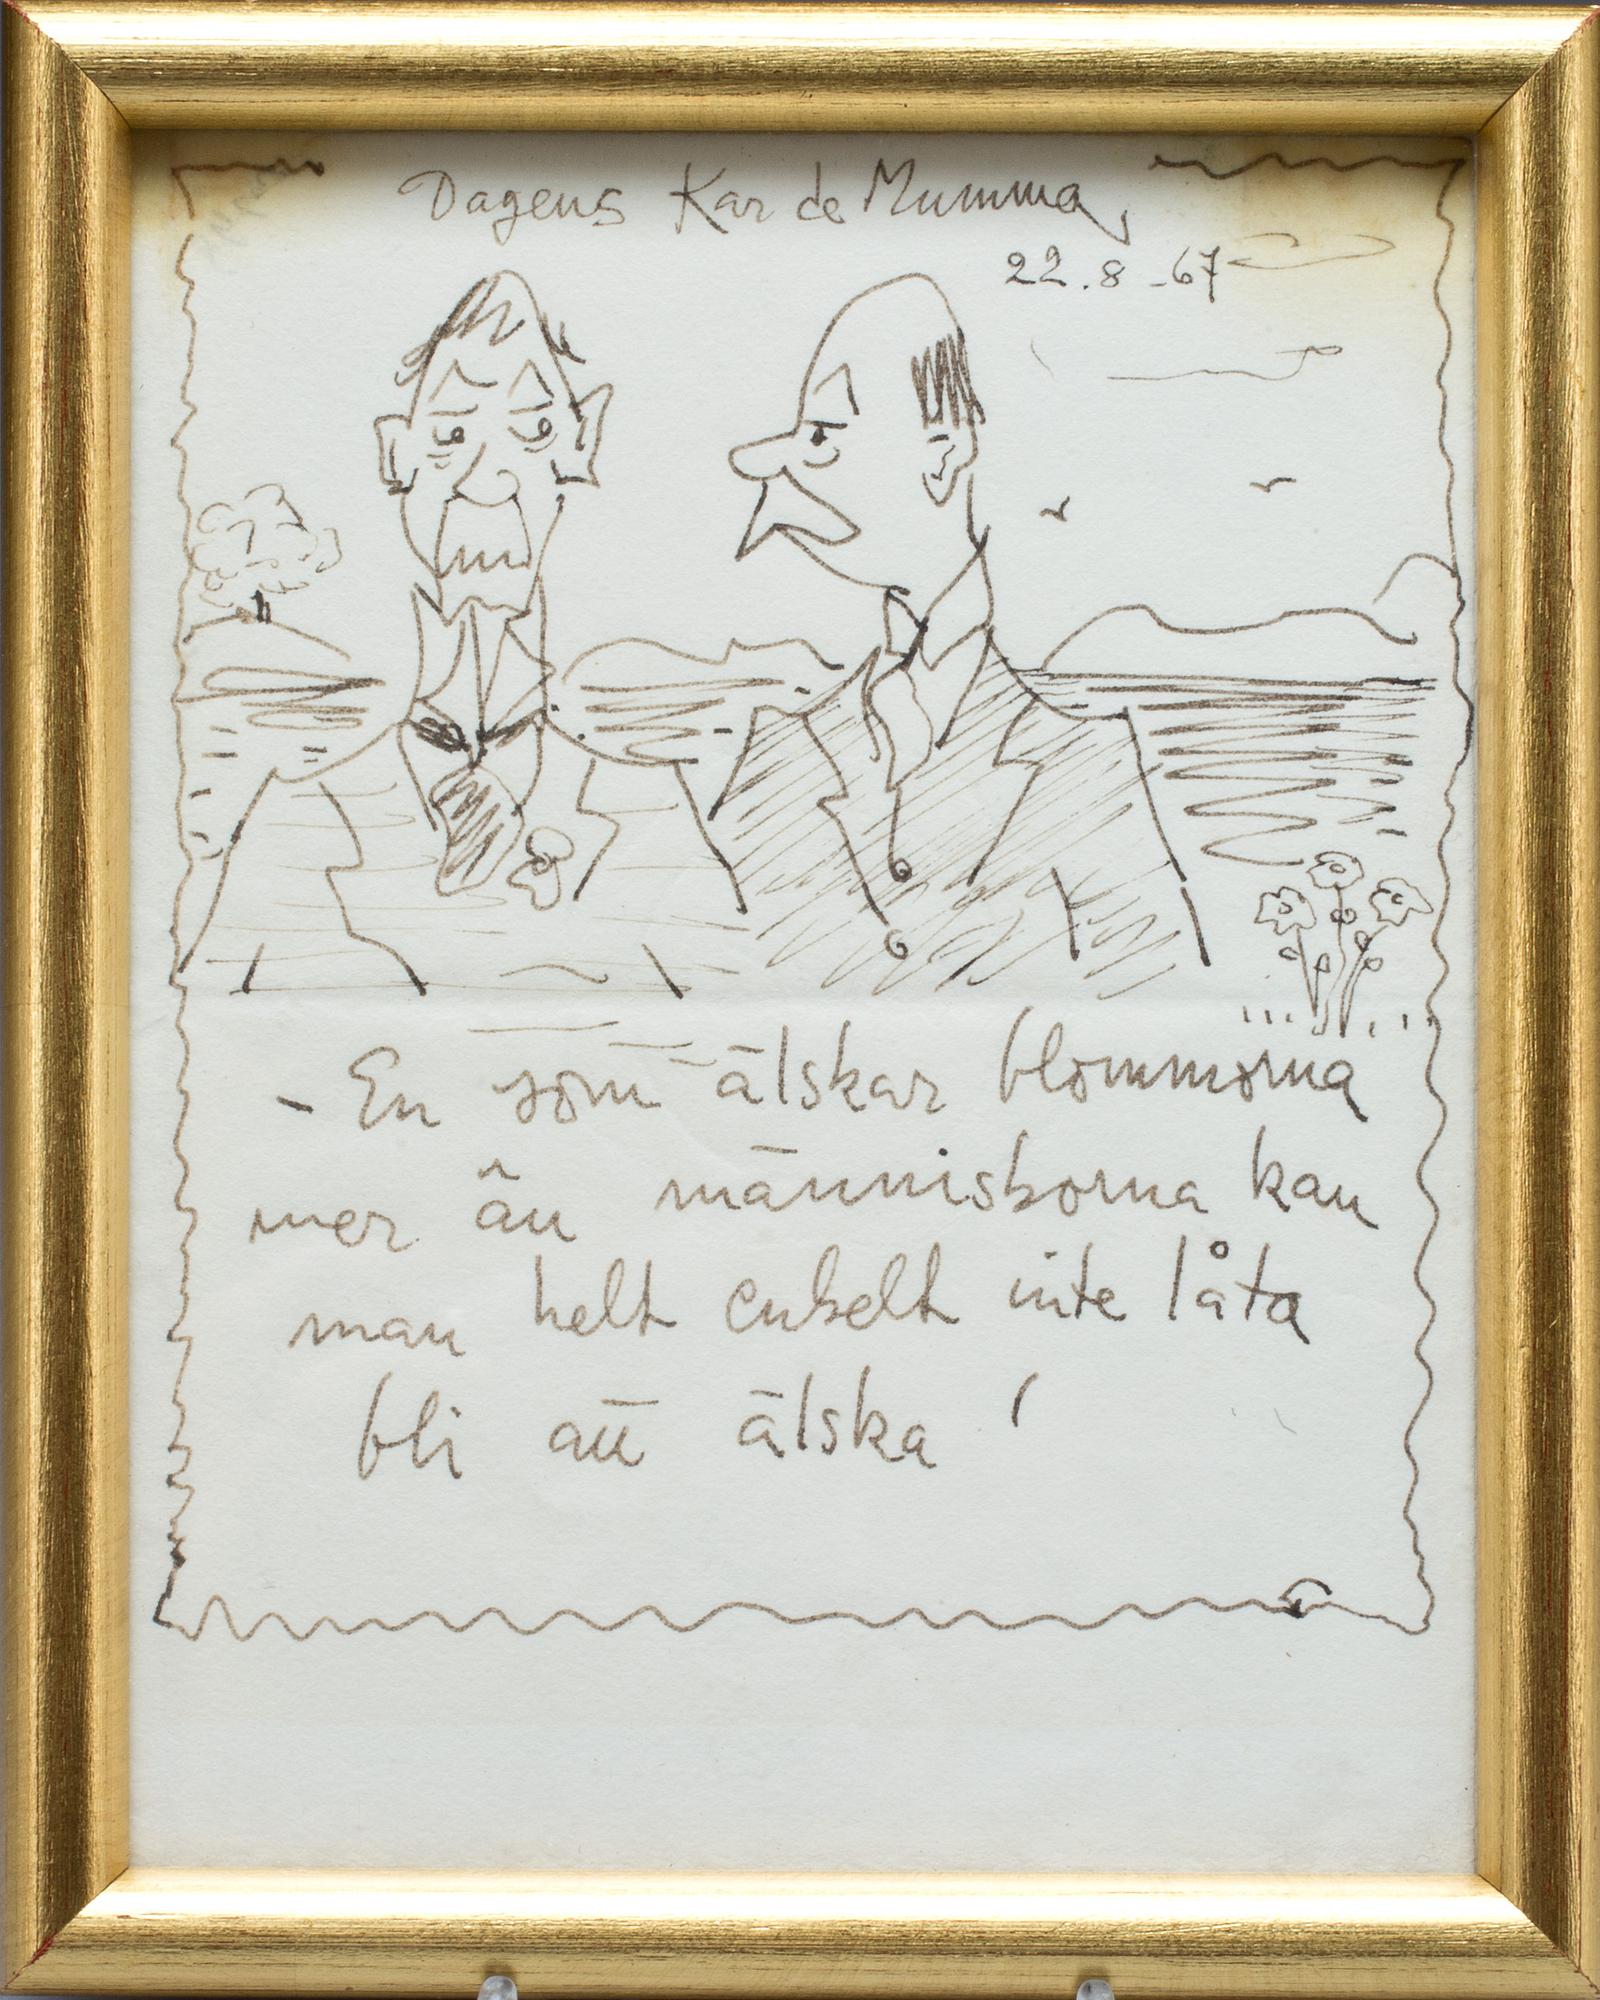 Dagens Kar de Mumma,
22.8-67
- En som älskar blommorna
mer än människorna kan
man helt enkelt inte låta
bli att älska!